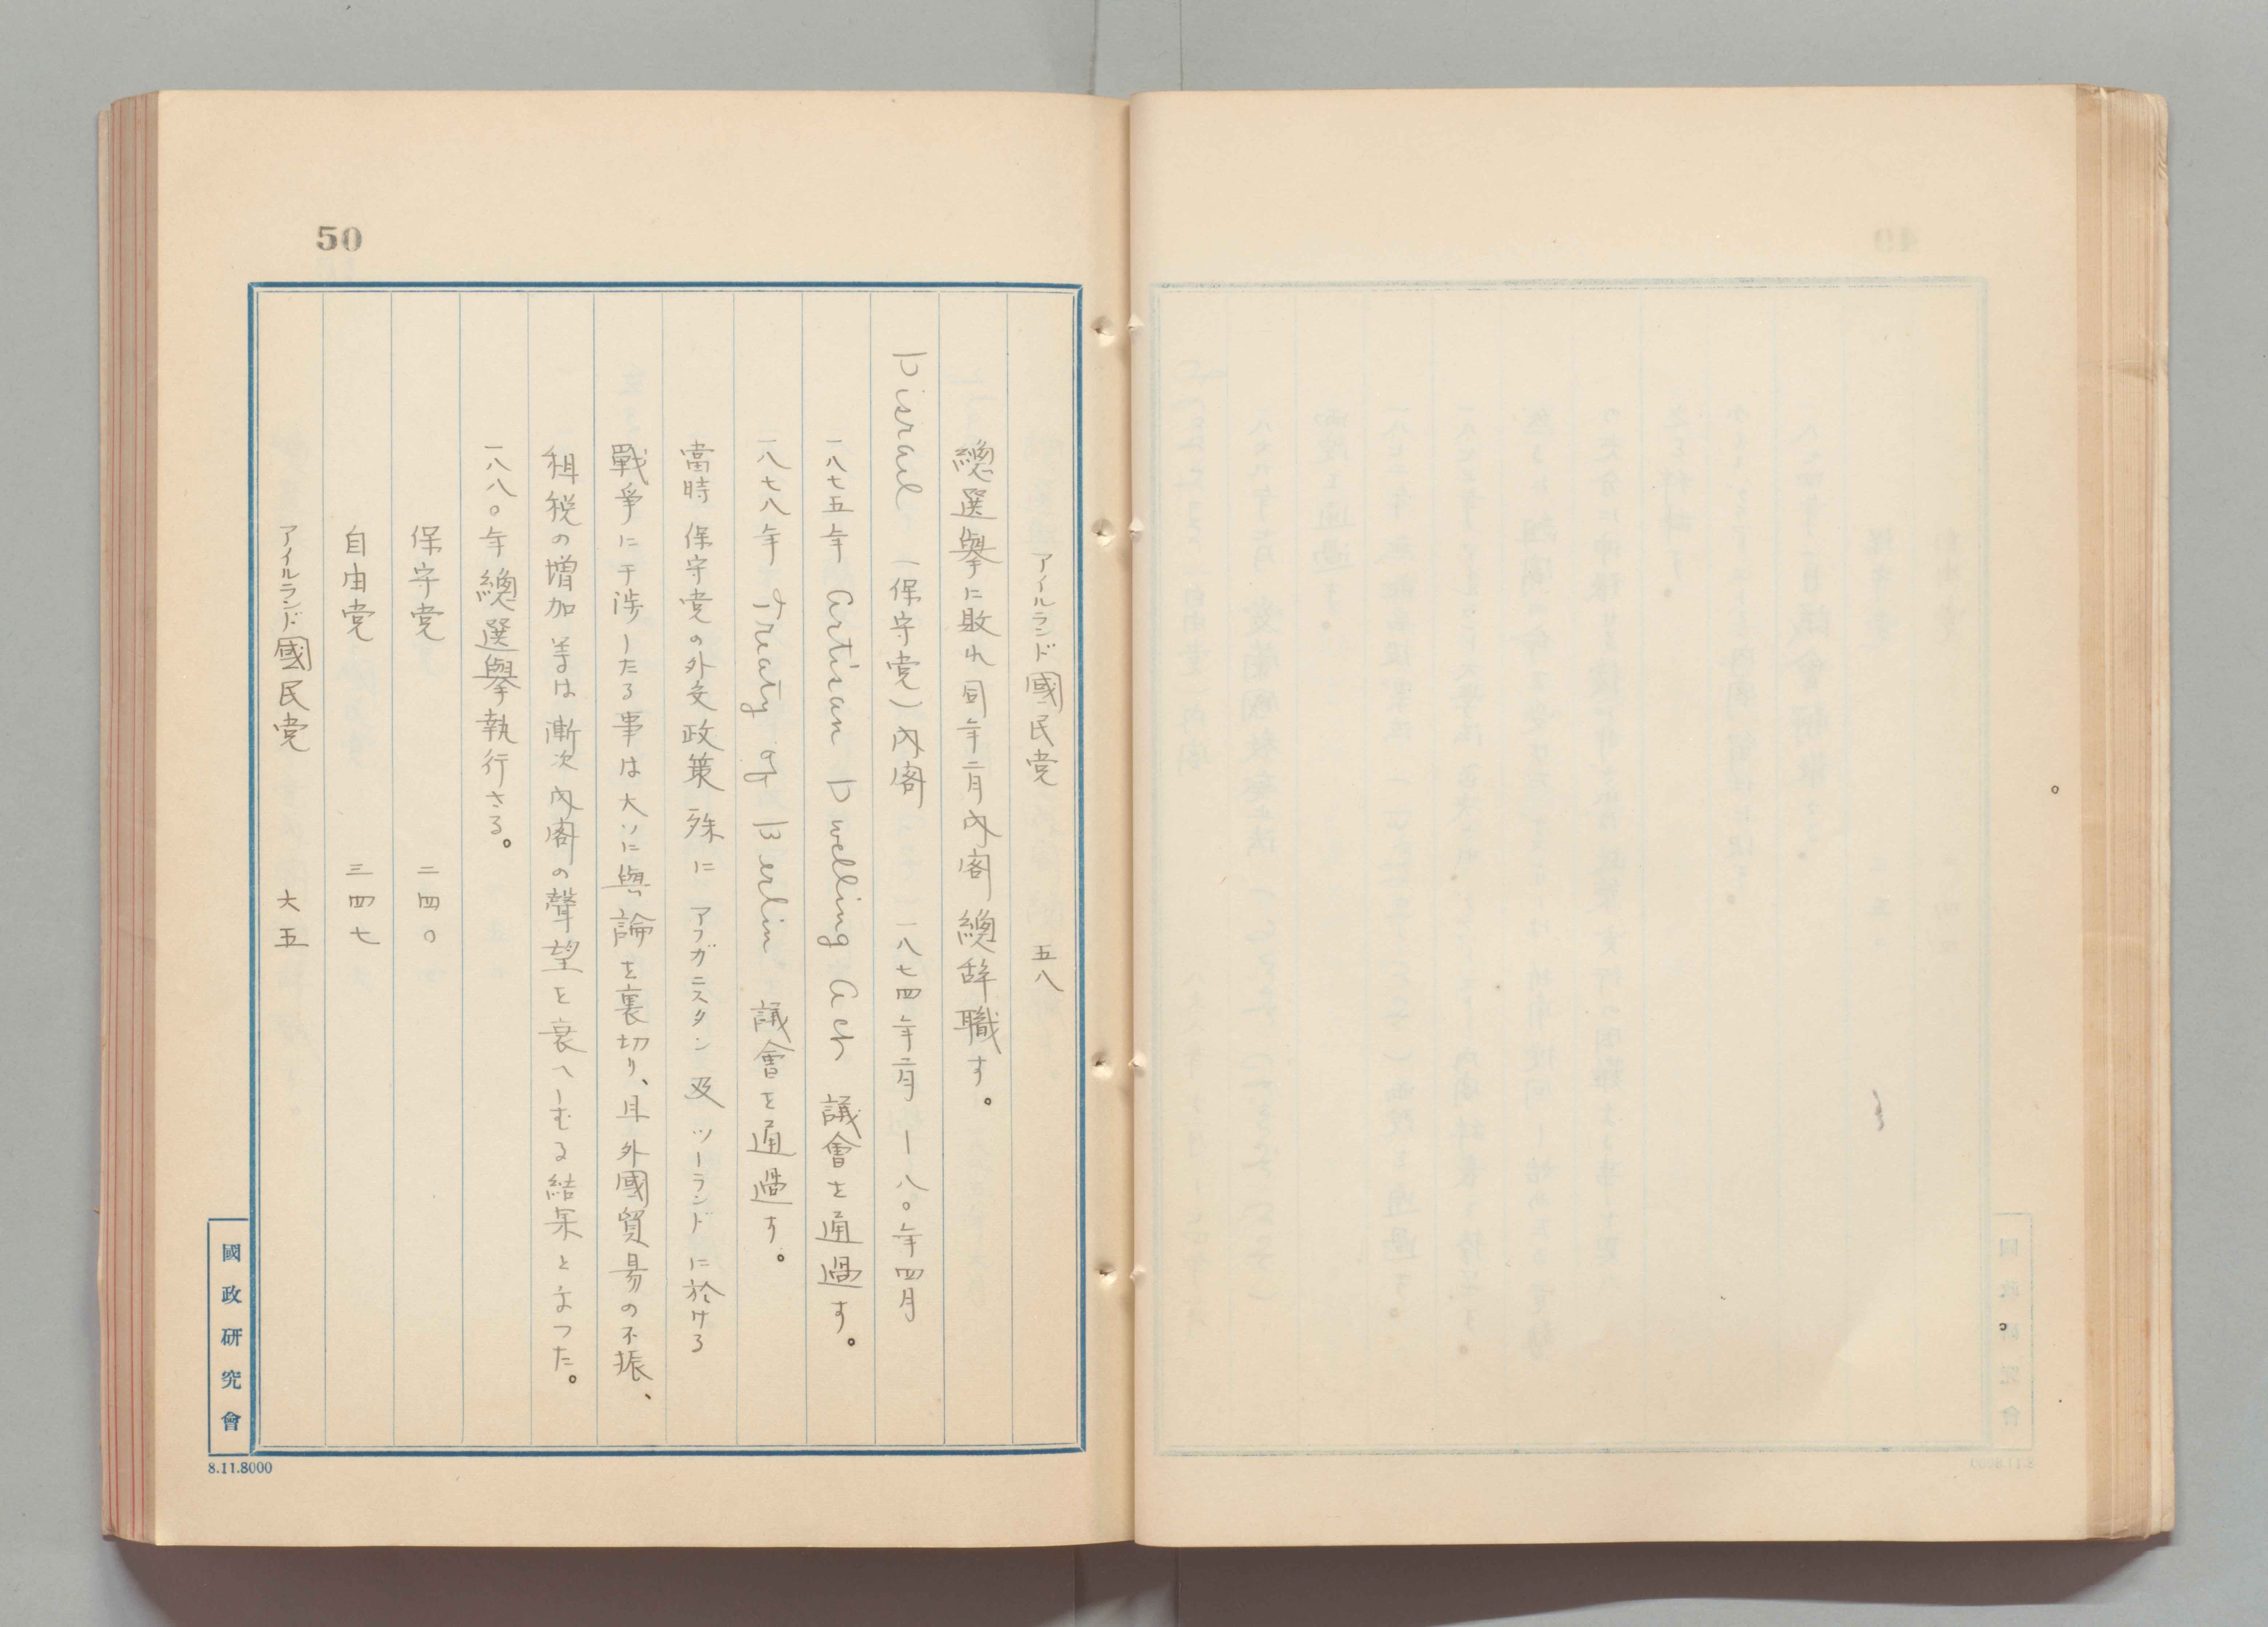 50
アイルランド國民党 五八
總選擧に敗れ同年二月内閣總辞職す。
Disraeli (保守党)内閣 一八七四年二月 ー 八〇年四月
一八七五年 Artisan Dwelling Act 議會を通過す。
一八七八年 Treaty of Berlin 議會を通過す。
當時保守党の外交政策殊にアフガニスタン及ツーランドに於ける
戰爭に干渉したる事は大いに輿論を裏切り、且外國貿易の不振、
租税の増加等は漸次内閣の聲望を衰へしむる結果となつた。
一八八〇年總選擧執行さる。
保守党 二四〇
自由党 三四七
アイルランド國民党 六五
國政研究會
8.11.8000